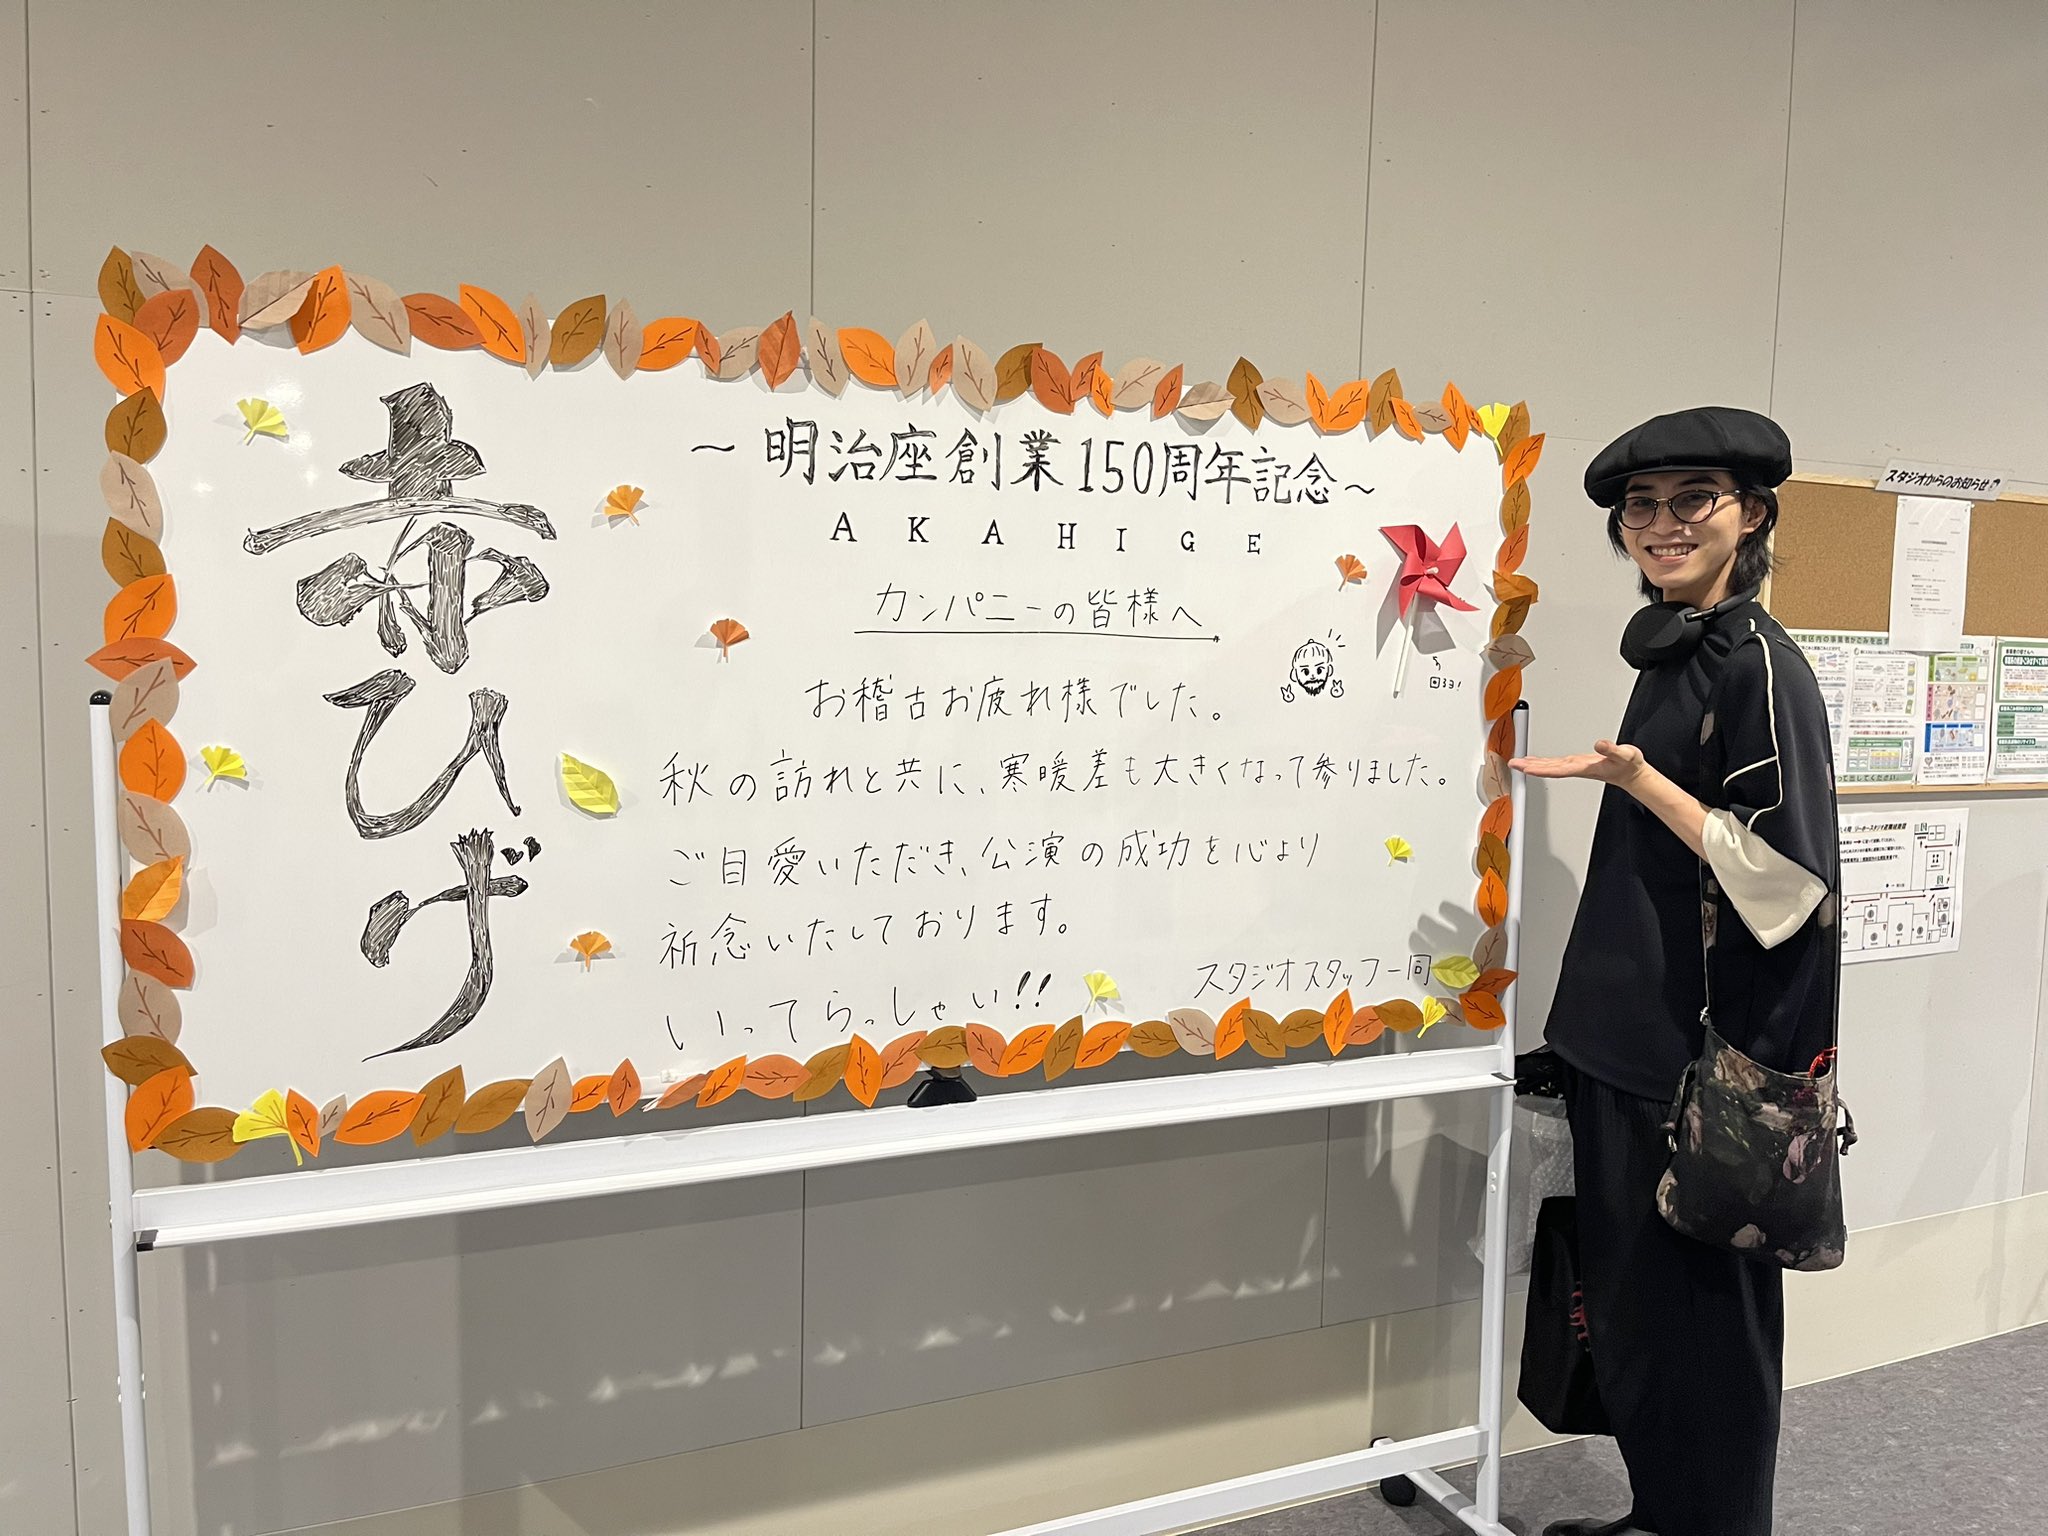 赤ひげ
～明治座創業150周年記念～
AKAHIGE
カンパニーの皆様へ
お稽古お疲れ様でした。
秋の訪れと共に、寒暖差も大きくなって参りました。
ご自愛いただき、公演の成功を心より
祈念いたしております。
いってらっしゃい!!
スタジオスタッフ一同
回るヨ!
スタジオからのお知らせ